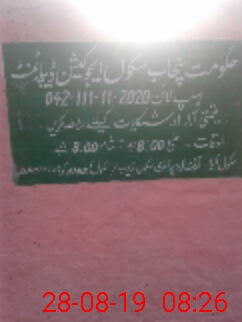 حکومت پنجاب سکول ایجوکیشن ڈیپارٹمنٹ
ہیلپ لائن 042-111-11-2020
قیمتی آراء اور شکایات کیلئے رابطہ کریں۔
اوقات۔ صبح 8:00 بجے تا شام 8:00 بجے
28-08-19 08:26